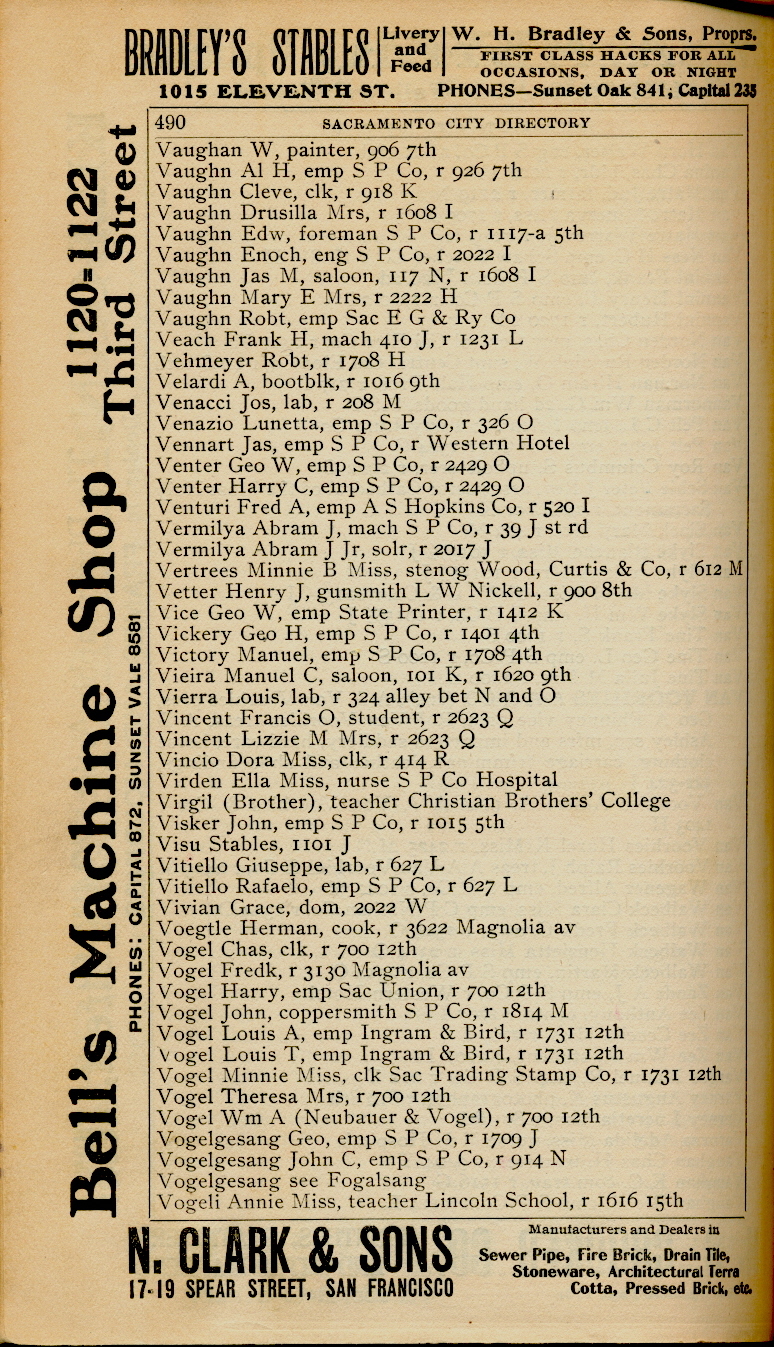 BRADLEY'S STABLES
Livery
and
Feed
W. H. Bradley & Sons, Proprs.
FIRST CLASS HACKS FOR ALL
OCCASIONS, DAY OR NIGHT
1015 ELEVENTH ST. PHONES—Sunset Oak 841; Capital 235
490 SACRAMENTO CITY DIRECTORY
Vaughan W, painter, 906 7th
Vaughn Al H, emp S P Co, r 926 7th
Vaughn Cleve, clk, r 918 K
Vaughn Drusilla Mrs, r 1608 I
Vaughn Edw, foreman S P Co, r 1117-a 5th
Vaughn Enoch, eng S P Co, r 2022 I
Vaughn Jas M, saloon, 117 N, r 1608 I
Vaughn Mary E Mrs, r 2222 H
Vaughn Robt, emp Sac E G & Ry Co
Veach Frank H, mach 410 J, r 1231 L
Vehmeyer Robt, r 1708 H
Velardi A, bootblk, r 1016 9th
Venacci Jos, lab, r 208 M
Venazio Lunetta, emp S P Co, r 326 O
Vennart Jas, emp S P Co, r Western Hotel
Venter Geo W, emp S P Co, r 2429 O
Venter Harry C, emp S P Co, r 2429 O
Venturi Fred A, emp A S Hopkins Co, r 520 I
Vermilya Abram J, mach S P Co, r 39 J st rd
Vermilya Abram J Jr, solr, r 2017 J
Vertrees Minnie B Miss, stenog Wood, Curtis & Co, r 612 M
Vetter Henry J, gunsmith L W Nickell, r 900 8th
Vice Geo W, emp State Printer, r 1412 K
Vickery Geo H, emp S P Co, r 1401 4th
Victory Manuel, emp S P Co, r 1708 4th
Vieira Manuel C, saloon, 101 K, r 1620 9th
Vierra Louis, lab, r 324 alley bet N and O
Vincent Francis O, student, r 2623 Q
Vincent Lizzie M Mrs, r 2623 Q
Vincio Dora Miss, clk, r 414 R
Virden Ella Miss, nurse S P Co Hospital
Virgil (Brother), teacher Christian Brothers' College
Visker John, emp S P Co, r 1015 5th
Visu Stables, 1101 J
Vitiello Giuseppe, lab, r 627 L
Vitiello Rafaelo, emp S P Co, r 627 L
Vivian Grace, dom, 2022 W
Voegtle Herman, cook, r 3622 Magnolia av
Vogel Chas, clk, r 700 12th
Vogel Fredk, r 3130 Magnolia av
Vogel Harry, emp Sac Union, r 700 12th
Vogel John, coppersmith S P Co, r 1814 M
Vogel Louis A, emp Ingram & Bird, r 1731 12th
Vogel Louis T, emp Ingram & Bird, r 1731 12th
Vogel Minnie Miss, clk Sac Trading Stamp Co, r 1731 12th
Vogel Theresa Mrs, r 700 12th
Vogel Wm A (Neubauer & Vogel), r 700 12th
Vogelgesang Geo, emp S P Co, r 1709 J
Vogelgesang John C, emp S P Co, r 914 N
Vogelgesang see Fogalsang
Vogeli Annie Miss, teacher Lincoln School, r 1616 15th
Bell's Machine Shop
1120=1122
Third Street
PHONES: CAPITAL 872, SUNSET VALE 8581
N. CLARK & SONS
17-19 SPEAR STREET, SAN FRANCISCO
Manufacturers and Dealers in
Sewer Pipe, Fire Brick, Drain Tile,
Stoneware, Architectural Terra
Cotta, Pressed Brick, etc.